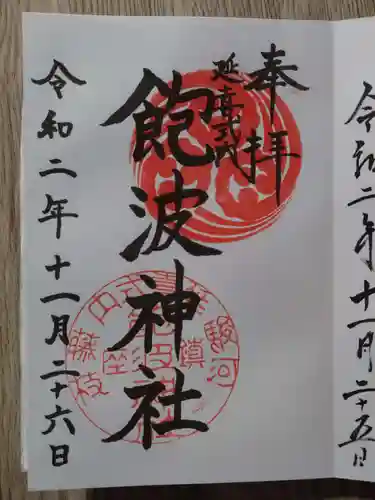 令和二年十一月二十五日
奉拝
延喜式内
飽波神社
令和二年十一月二十六日
駿河
鎮座
藤枝